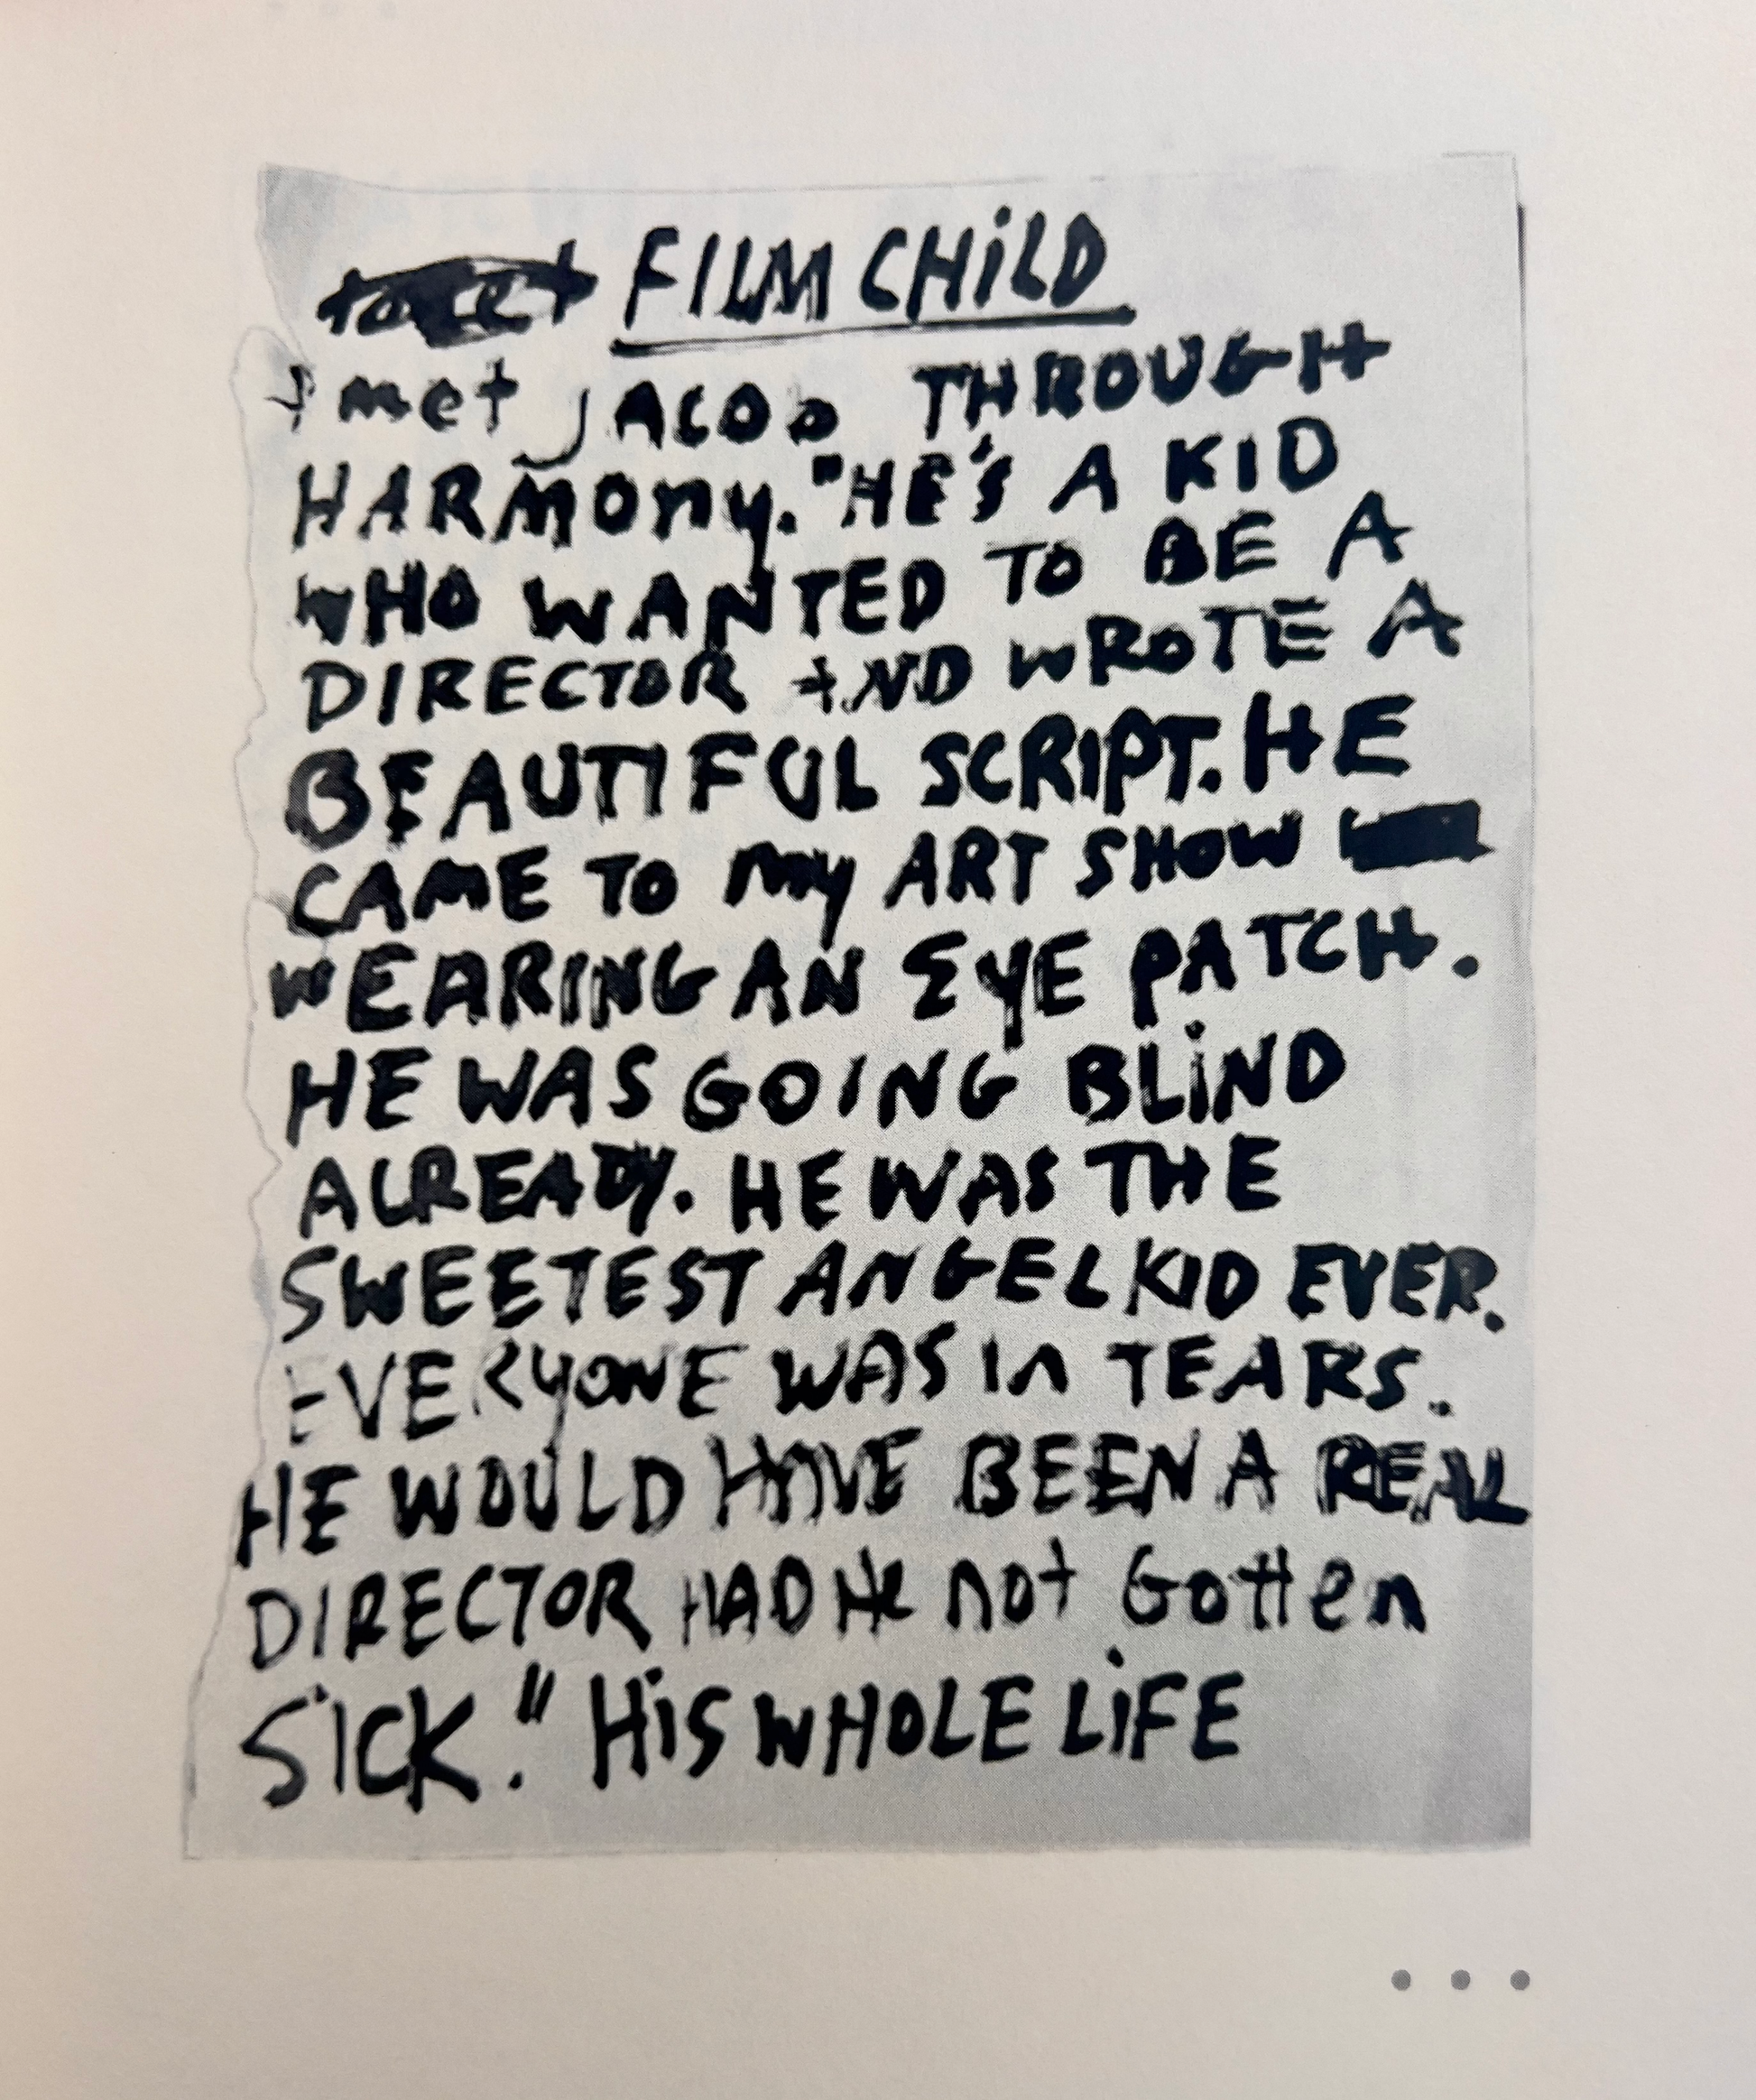 FILM CHiLD
I met JACOB THROUGH
HARMOny. "HE'S A KID
WHO WANTED TO BE A
DIRECTOR AND WROTE A
BEAUTIFUL SCRIPT. HE
CAME TO My ART SHOW
WEARING AN EyE PATCH.
HE WAS GOING BLiND
ALREADY. HE WAS THE
SWEETEST ANGEL KID EVER.
EVERyONE WAS In TEARS.
HE WOULD HAVE BEEN A REAL
DIRECTOR HAD He not Gotten
SICK." HiS WHOLE LiFE